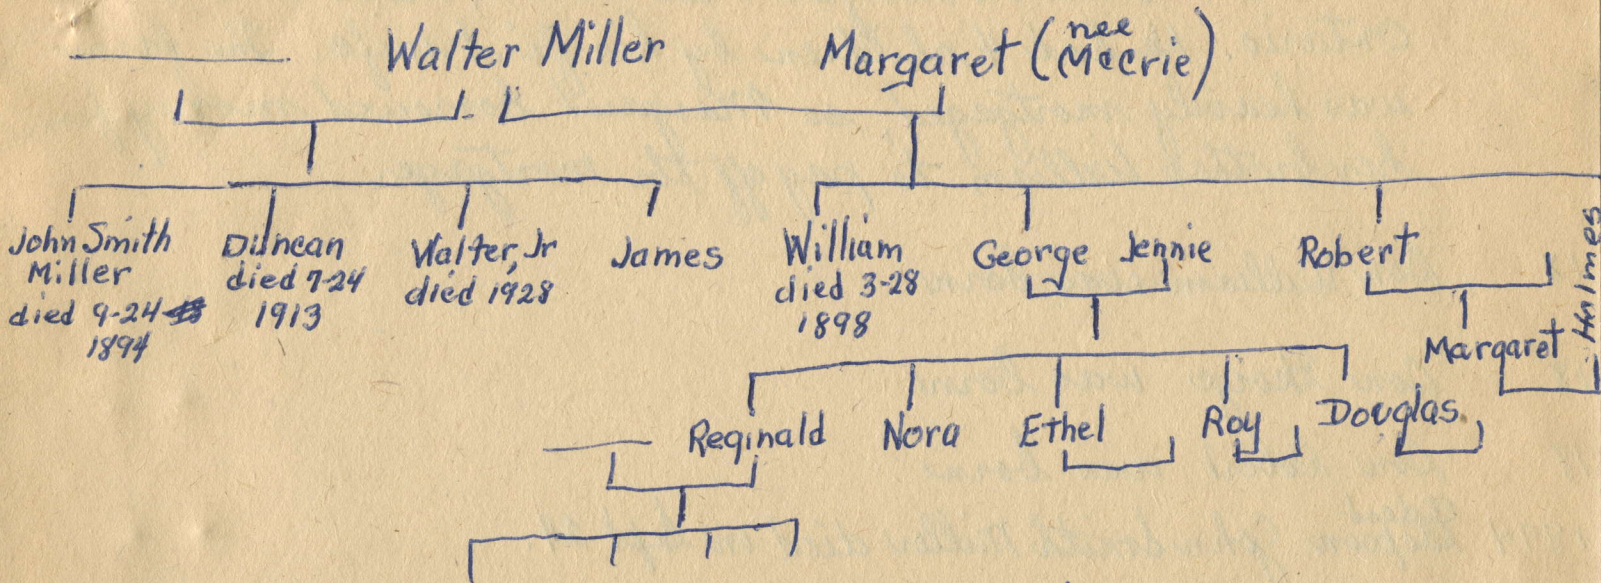 Walter Miller Margaret (nee McCrie)
John Smith Miller died 9-24 1894
Duncan died 7-24 1913
Walter, Jr died 1928
James
William died 3-28 1898
George Jennie
Robert
Holmes
Margaret
Reginald Nora Ethel Roy Douglas